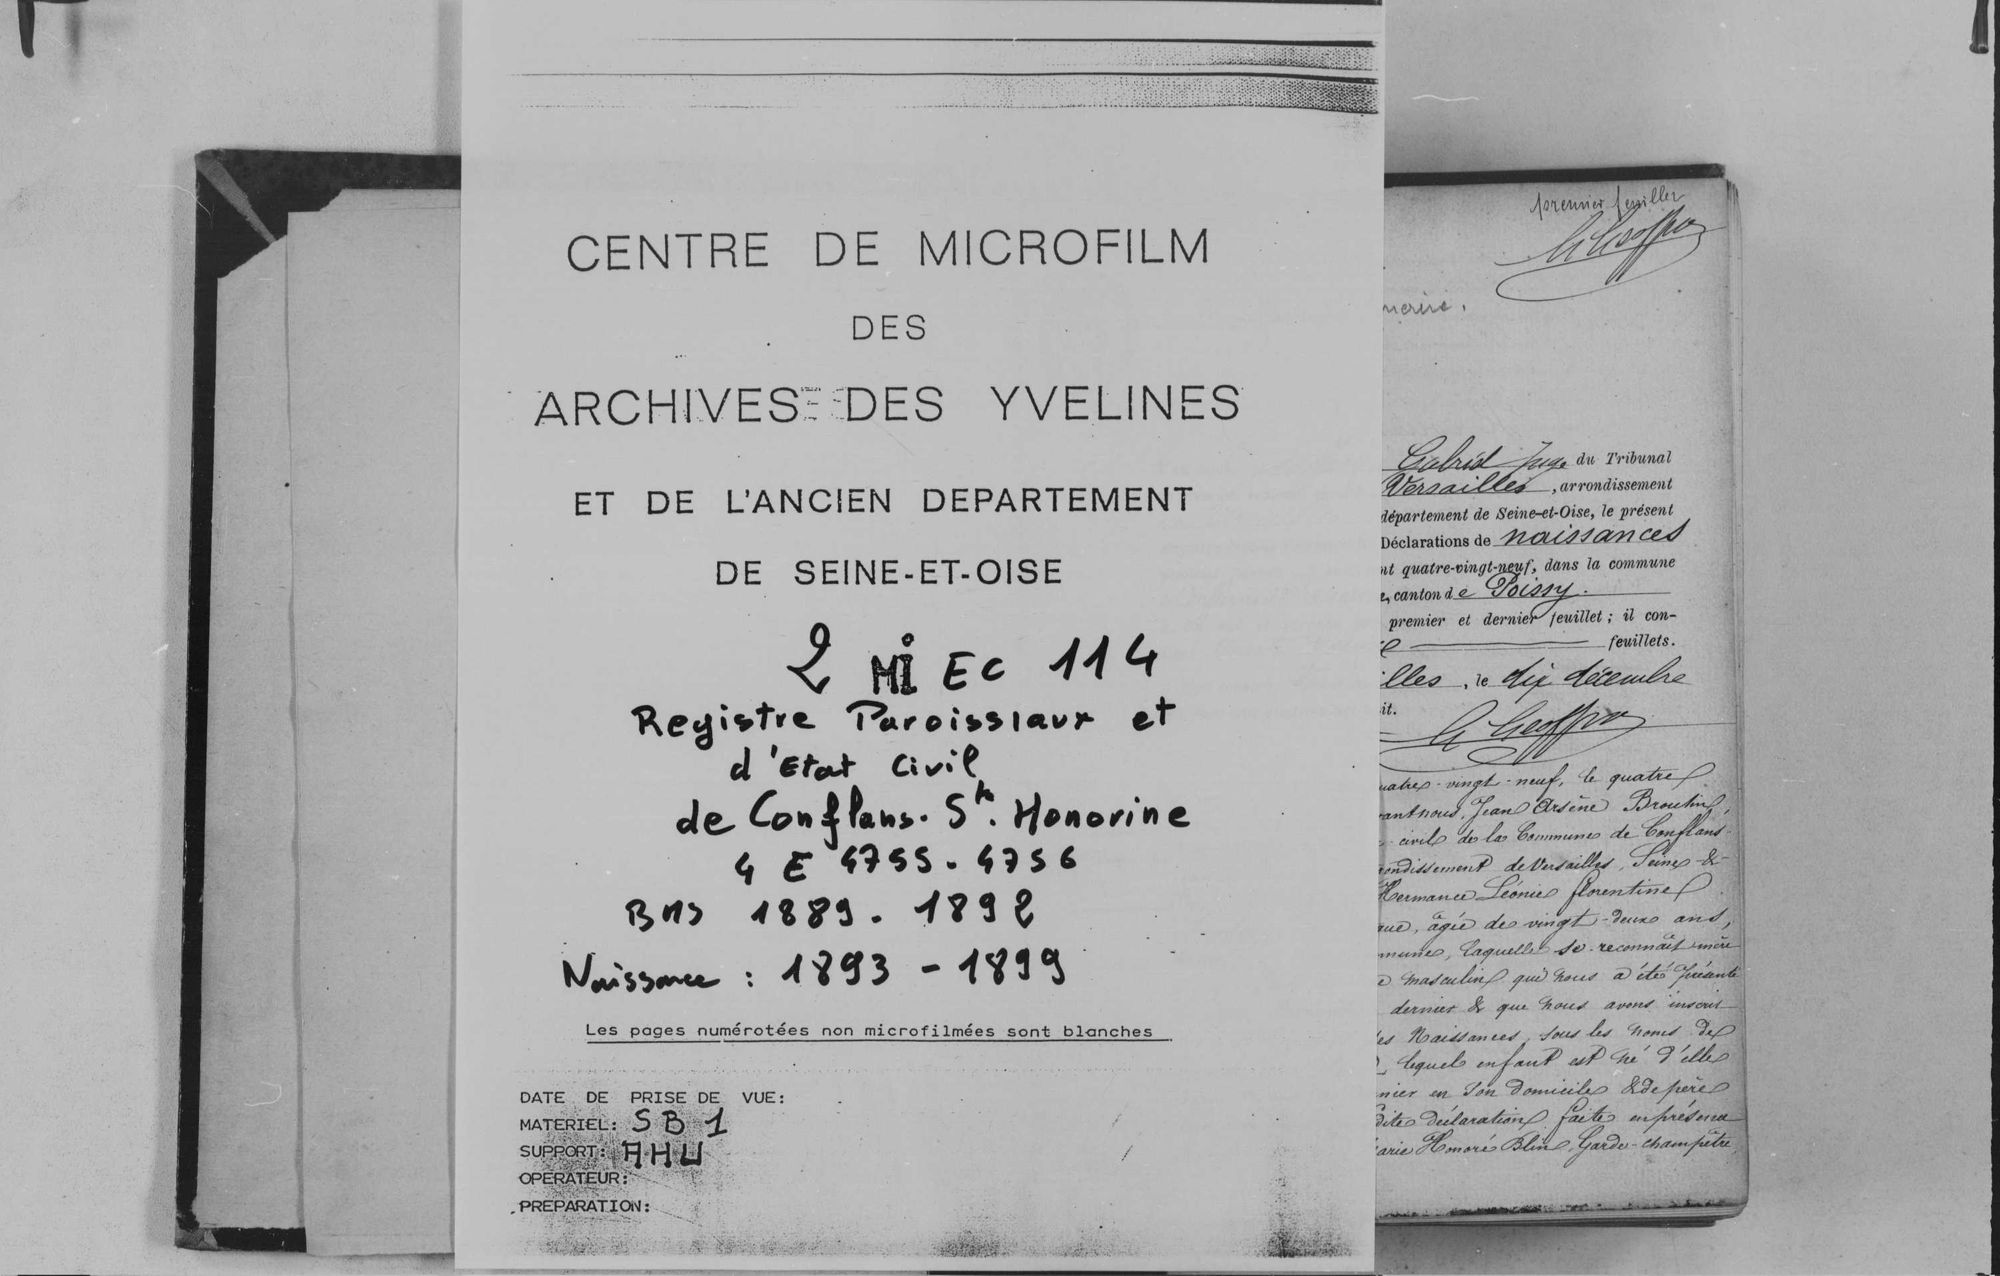 CENTRE DE MICROFILM
DES
ARCHIVES DES YVELINES
ET DE L'ANCIEN DEPARTEMENT
DE SEINE-ET-OISE
2 MI EC 114
Registre Paroissiaux et
d'Etat Civil
de Conflans. Ste. Honorine
4 E 4755 - 4756
BMS 1889 - 1892
Naissance : 1893 - 1899
Les pages numérotées non microfilmées sont blanches
DATE DE PRISE DE VUE:
MATERIEL: SB 1
SUPPORT: AHU
OPERATEUR:
PREPARATION:
premier feuillet
Gabriel Juge du Tribunal
Versailles, arrondissement
département de Seine-et-Oise, le présent
Déclarations de naissances
nt quatre-vingt-neuf, dans la commune
e, canton de Poissy.
premier et dernier feuillet ; il con-
feuillets.
illes, le dix décembre
it.
uatre-vingt-neuf, le quatre
vant nous, Jean Arsène Broutin,
civil de la Commune de Conflans-
rondissement de Versailles, Seine-&-
Hermance Léonie Florentine
que, âgée de vingt-deux ans,
mune, laquelle se reconnaît mère
e masculin qui nous a été présenté
dernier & que nous avons inscrit
es Naissances, sous les noms de
lequel enfant est né d'elle
nier en son domicile & de père
dite déclaration faite en présence
arie Honoré Blin, Garde-champêtre